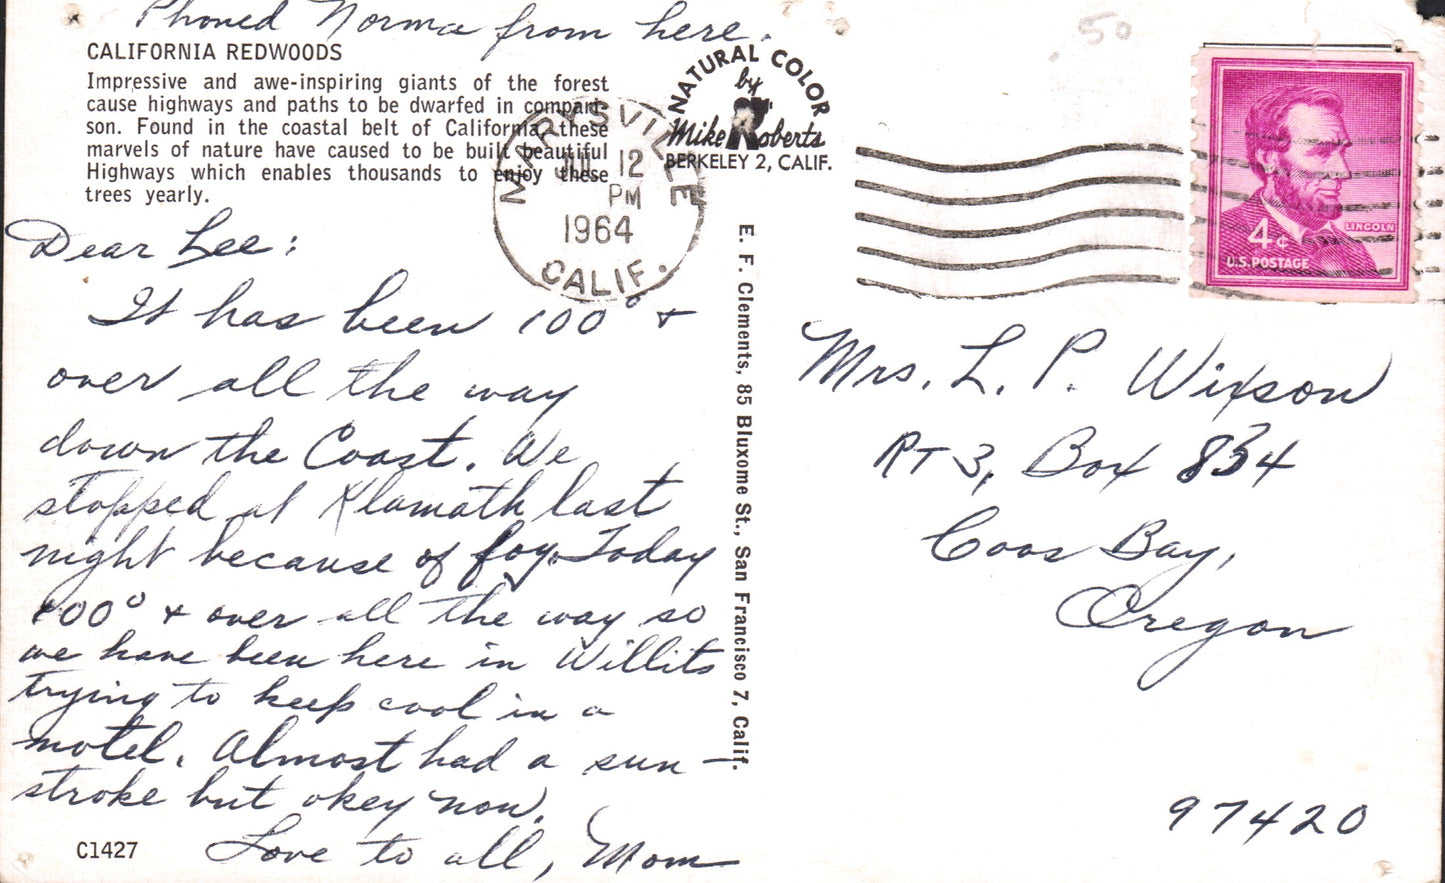 Phoned Norma from here.
CALIFORNIA REDWOODS
Impressive and awe-inspiring giants of the forest
cause highways and paths to be dwarfed in compari-
son. Found in the coastal belt of California, these
marvels of nature have caused to be built beautiful
Highways which enables thousands to enjoy these
trees yearly.
Dear Lee:
It has been 100° &
over all the way
down the Coast. We
stopped at Klamath last
night because of fog. Today
100° & over all the way so
we have been here in Willits
trying to keep cool in a
motel. Almost had a sun-
stroke but okey now.
Love to all, Mom
C1427
E. F. Clements, 85 Bluxome St., San Francisco 7, Calif.
NATURAL COLOR
by
Mike Roberts
BERKELEY 2, CALIF.
MARYSVILLE
12
PM
1964
CALIF.
.50
4¢
LINCOLN
U.S. POSTAGE
Mrs. L. P. Wixson
RT 3, Box 834
Coos Bay,
Oregon
97420